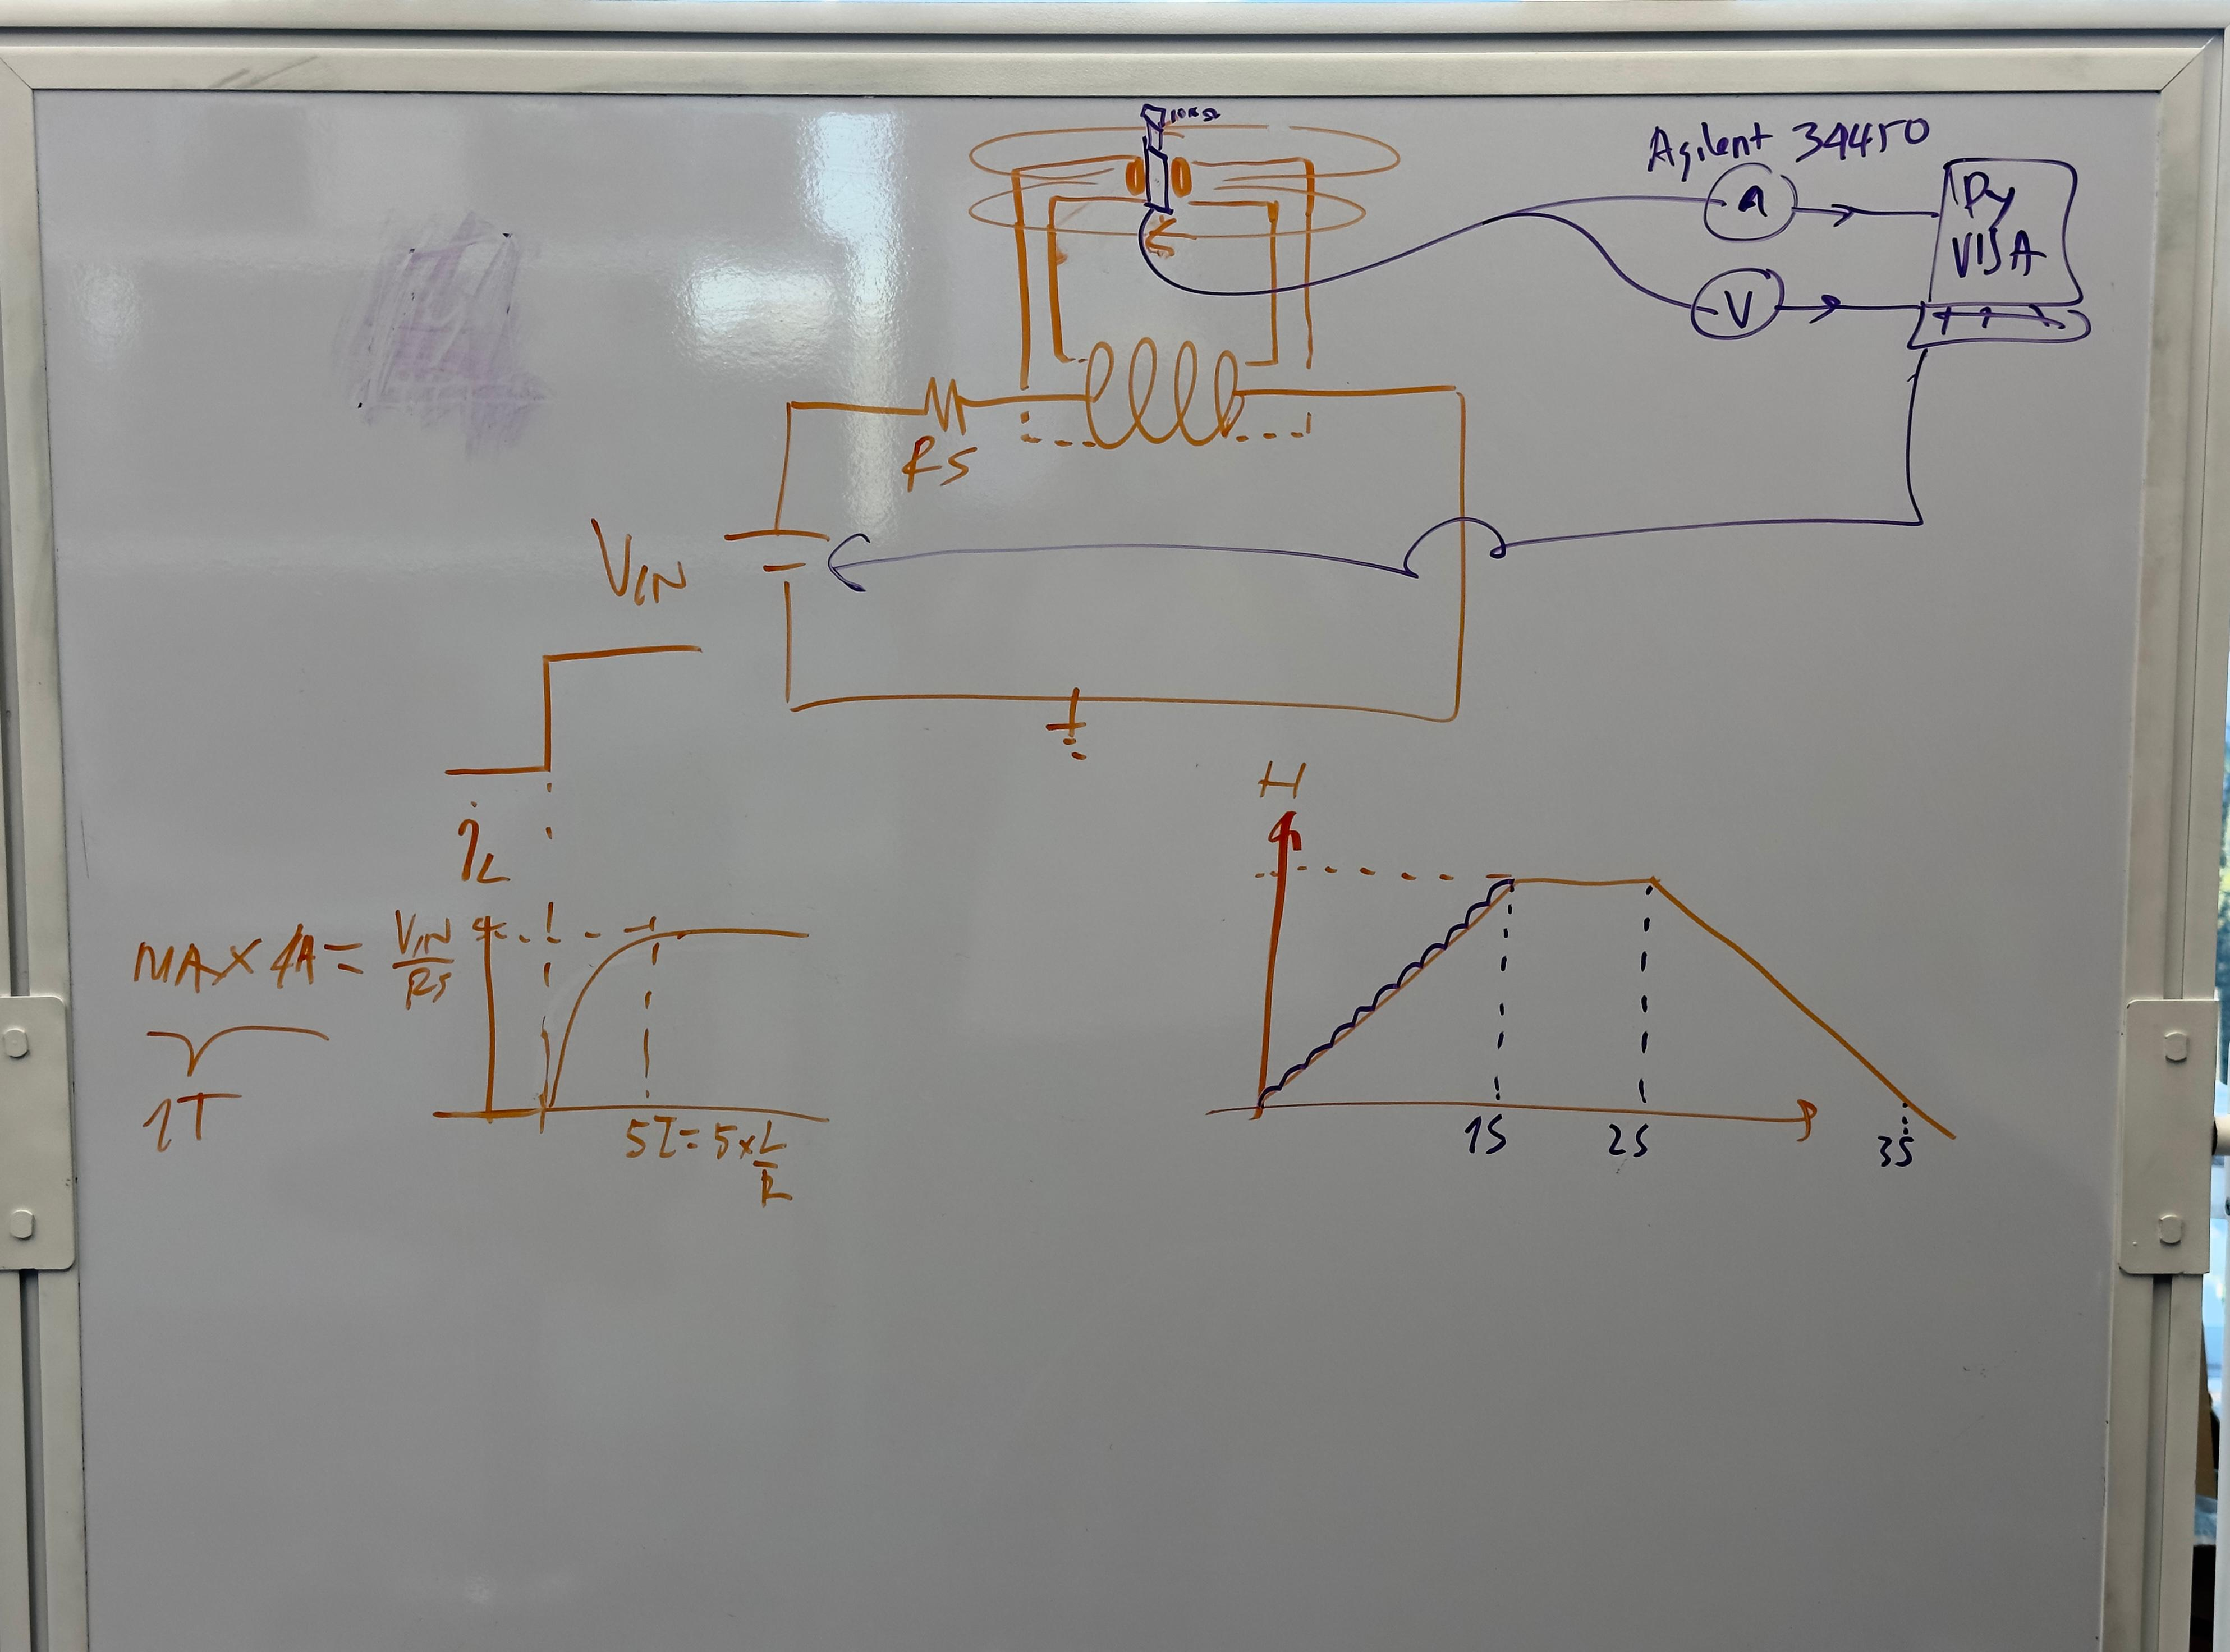 10KΩ
Agilent 34450
a
Py
VISA
V
RS
VIN
H
iL
MAX 1A = VIN/RS
1T
5τ = 5 x L/R
1S
2S
3S